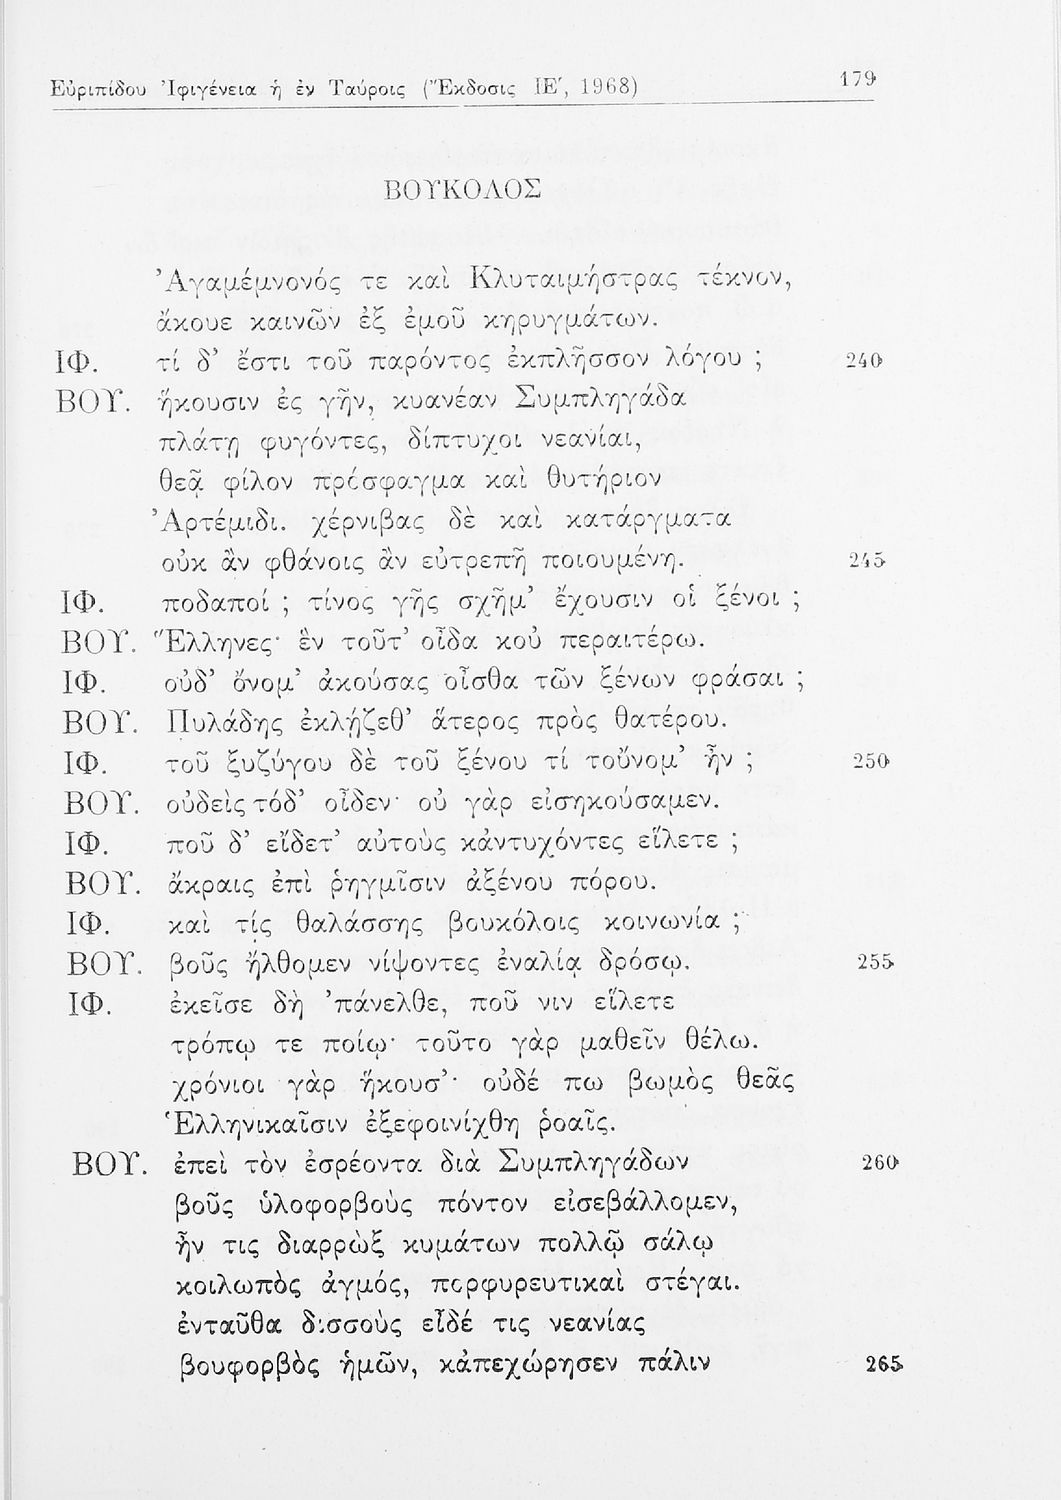 Εὐριπίδου Ἰφιγένεια ἡ ἐν Ταύροις (Ἔκδοσις ΙΕ΄, 1968) 179
ΒΟΥΚΟΛΟΣ
Ἀγαμέμνονός τε καὶ Κλυταιμήστρας τέκνον,
ἄκουε καινῶν ἐξ ἐμοῦ κηρυγμάτων.
ΙΦ. τί δ’ ἔστι τοῦ παρόντος ἐκπλῆσσον λόγου ; 240
ΒΟΥ. ἥκουσιν ἐς γῆν, κυανέαν Συμπληγάδα
πλάτῃ φυγόντες, δίπτυχοι νεανίαι,
θεᾷ φίλον πρόσφαγμα καὶ θυτήριον
Ἀρτέμιδι. χέρνιβας δὲ καὶ κατάργματα
οὐκ ἂν φθάνοις ἂν εὐτρεπῆ ποιουμένη. 245
ΙΦ. ποδαποί ; τίνος γῆς σχῆμ’ ἔχουσιν οἱ ξένοι ;
ΒΟΥ. Ἕλληνες· ἓν τοῦτ’ οἶδα κοὐ περαιτέρω.
ΙΦ. οὐδ’ ὄνομ’ ἀκούσας οἶσθα τῶν ξένων φράσαι ;
ΒΟΥ. Πυλάδης ἐκλῄζεθ’ ἅτερος πρὸς θατέρου.
ΙΦ. τοῦ ξυζύγου δὲ τοῦ ξένου τί τοὔνομ’ ἦν ; 250
ΒΟΥ. οὐδεὶς τόδ’ οἶδεν· οὐ γὰρ εἰσηκούσαμεν.
ΙΦ. ποῦ δ’ εἴδετ’ αὐτοὺς κἀντυχόντες εἵλετε ;
ΒΟΥ. ἄκραις ἐπὶ ῥηγμῖσιν ἀξένου πόρου.
ΙΦ. καὶ τίς θαλάσσης βουκόλοις κοινωνία ;
ΒΟΥ. βοῦς ἤλθομεν νίψοντες ἐναλίᾳ δρόσῳ. 255
ΙΦ. ἐκεῖσε δὴ ’πάνελθε, ποῦ νιν εἵλετε
τρόπῳ τε ποίῳ· τοῦτο γὰρ μαθεῖν θέλω.
χρόνιοι γὰρ ἥκουσ’· οὐδέ πω βωμὸς θεᾶς
Ἑλληνικαῖσιν ἐξεφοινίχθη ῥοαῖς.
ΒΟΥ. ἐπεὶ τὸν ἐσρέοντα διὰ Συμπληγάδων 260
βοῦς ὑλοφορβοὺς πόντον εἰσεβάλλομεν,
ἦν τις διαρρὼξ κυμάτων πολλῷ σάλῳ
κοιλωπὸς ἀγμός, πορφυρευτικαὶ στέγαι.
ἐνταῦθα δισσοὺς εἶδέ τις νεανίας
βουφορβὸς ἡμῶν, κἀπεχώρησεν πάλιν 265